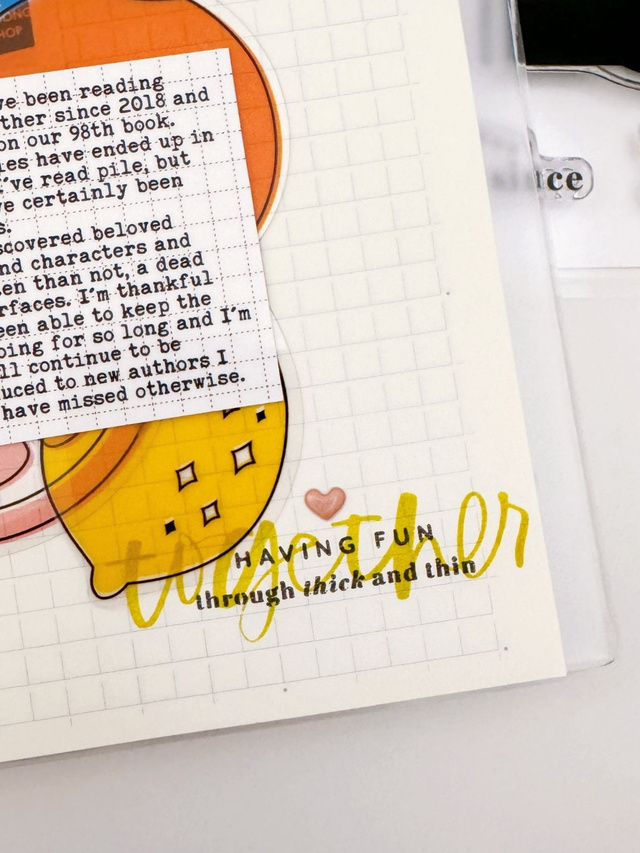 ONG
HOP
ve been reading
ther since 2018 and
on our 98th book.
ies have ended up in
I've read pile, but
ve certainly been
s.
scovered beloved
nd characters and
en than not, a dead
rfaces. I'm thankful
een able to keep the
oing for so long and I'm
ll continue to be
uced to new authors I
have missed otherwise.
together
HAVING FUN
through thick and thin
ce